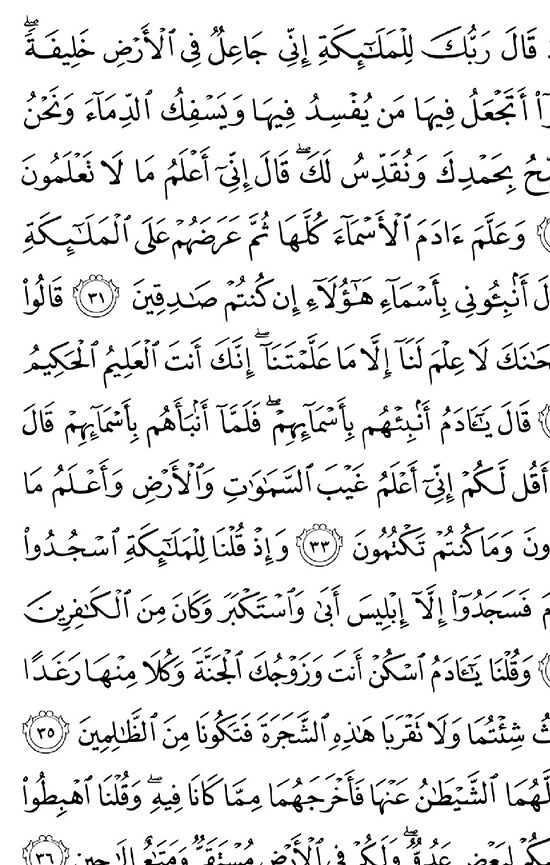 قَالَ رَبُّكَ لِلْمَلَـٰٓئِكَةِ إِنِّى جَاعِلٌ فِى ٱلْأَرْضِ خَلِيفَةً ۖ
أَتَجْعَلُ فِيهَا مَن يُفْسِدُ فِيهَا وَيَسْفِكُ ٱلدِّمَآءَ وَنَحْنُ
بِحَمْدِكَ وَنُقَدِّسُ لَكَ ۖ قَالَ إِنِّىٓ أَعْلَمُ مَا لَا تَعْلَمُونَ
وَعَلَّمَ ءَادَمَ ٱلْأَسْمَآءَ كُلَّهَا ثُمَّ عَرَضَهُمْ عَلَى ٱلْمَلَـٰٓئِكَةِ
أَنۢبِـُٔونِى بِأَسْمَآءِ هَـٰٓؤُلَآءِ إِن كُنتُمْ صَـٰدِقِينَ ٣١ قَالُوا۟
لَا عِلْمَ لَنَآ إِلَّا مَا عَلَّمْتَنَآ ۖ إِنَّكَ أَنتَ ٱلْعَلِيمُ ٱلْحَكِيمُ
قَالَ يَـٰٓـَٔادَمُ أَنۢبِئْهُم بِأَسْمَآئِهِمْ ۖ فَلَمَّآ أَنۢبَأَهُم بِأَسْمَآئِهِمْ قَالَ
أَقُل لَّكُمْ إِنِّىٓ أَعْلَمُ غَيْبَ ٱلسَّمَـٰوَٰتِ وَٱلْأَرْضِ وَأَعْلَمُ مَا
وَمَا كُنتُمْ تَكْتُمُونَ ٣٣ وَإِذْ قُلْنَا لِلْمَلَـٰٓئِكَةِ ٱسْجُدُوا۟
فَسَجَدُوٓا۟ إِلَّآ إِبْلِيسَ أَبَىٰ وَٱسْتَكْبَرَ وَكَانَ مِنَ ٱلْكَـٰفِرِينَ
وَقُلْنَا يَـٰٓـَٔادَمُ ٱسْكُنْ أَنتَ وَزَوْجُكَ ٱلْجَنَّةَ وَكُلَا مِنْهَا رَغَدًا
شِئْتُمَا وَلَا تَقْرَبَا هَـٰذِهِ ٱلشَّجَرَةَ فَتَكُونَا مِنَ ٱلظَّـٰلِمِينَ ٣٥
ٱلشَّيْطَـٰنُ عَنْهَا فَأَخْرَجَهُمَا مِمَّا كَانَا فِيهِ ۖ وَقُلْنَا ٱهْبِطُوا۟
لِبَعْضٍ عَدُوٌّ ۖ وَلَكُمْ فِى ٱلْأَرْضِ مُسْتَقَرٌّ وَمَتَـٰعٌ إِلَىٰ حِينٍ ٣٦